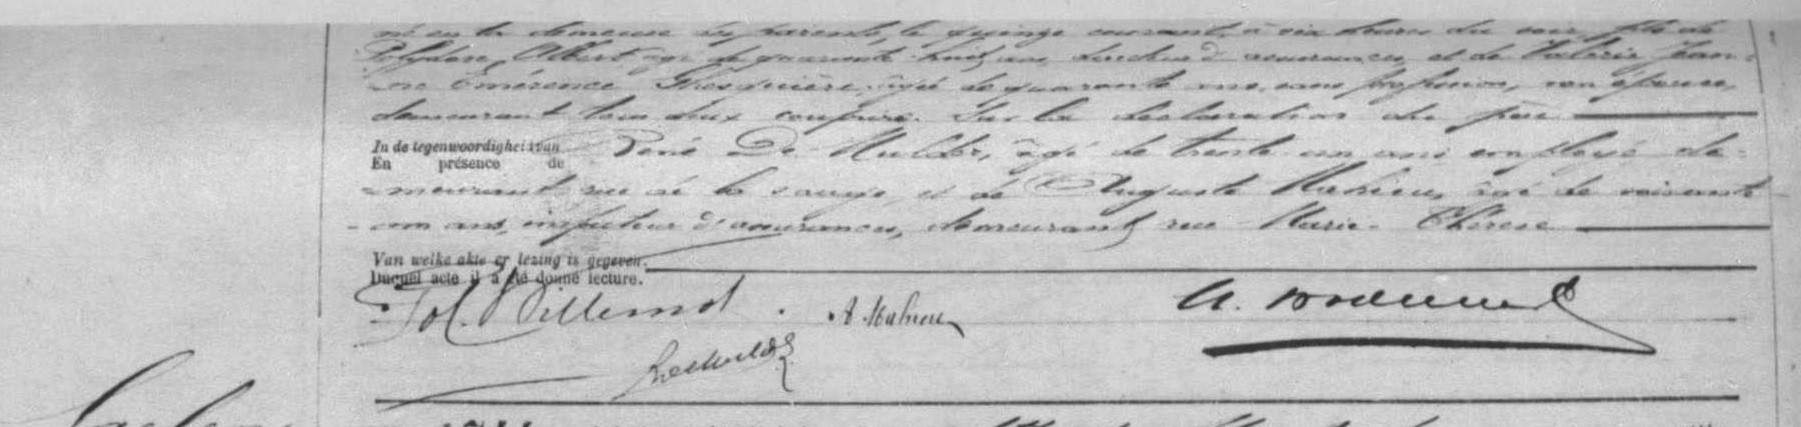 né en la demeure des parents, le quinze courant, à six heures du soir, fils de
Polydore, Albert, âgé de quarante huit ans, directeur d'assurances, et de Valérie Jean-
ne Emérence Ghesquière, âgée de quarante ans, sans profession, son épouse,
demeurant tous deux Coupure. Sur la déclaration du père
In de tegenwoordigheid van
En présence de
René De Mulder, âgé de trente un ans employé de-
meurant rue de la Sauge, et de Auguste Mahieu, âgé de soixante
un ans, inspecteur d'assurances, demeurant rue Marie-Thérèse
Van welke akte er lezing is gegeven.
Duquel acte il a été donné lecture.
Pol. Willemot. A Mahieu